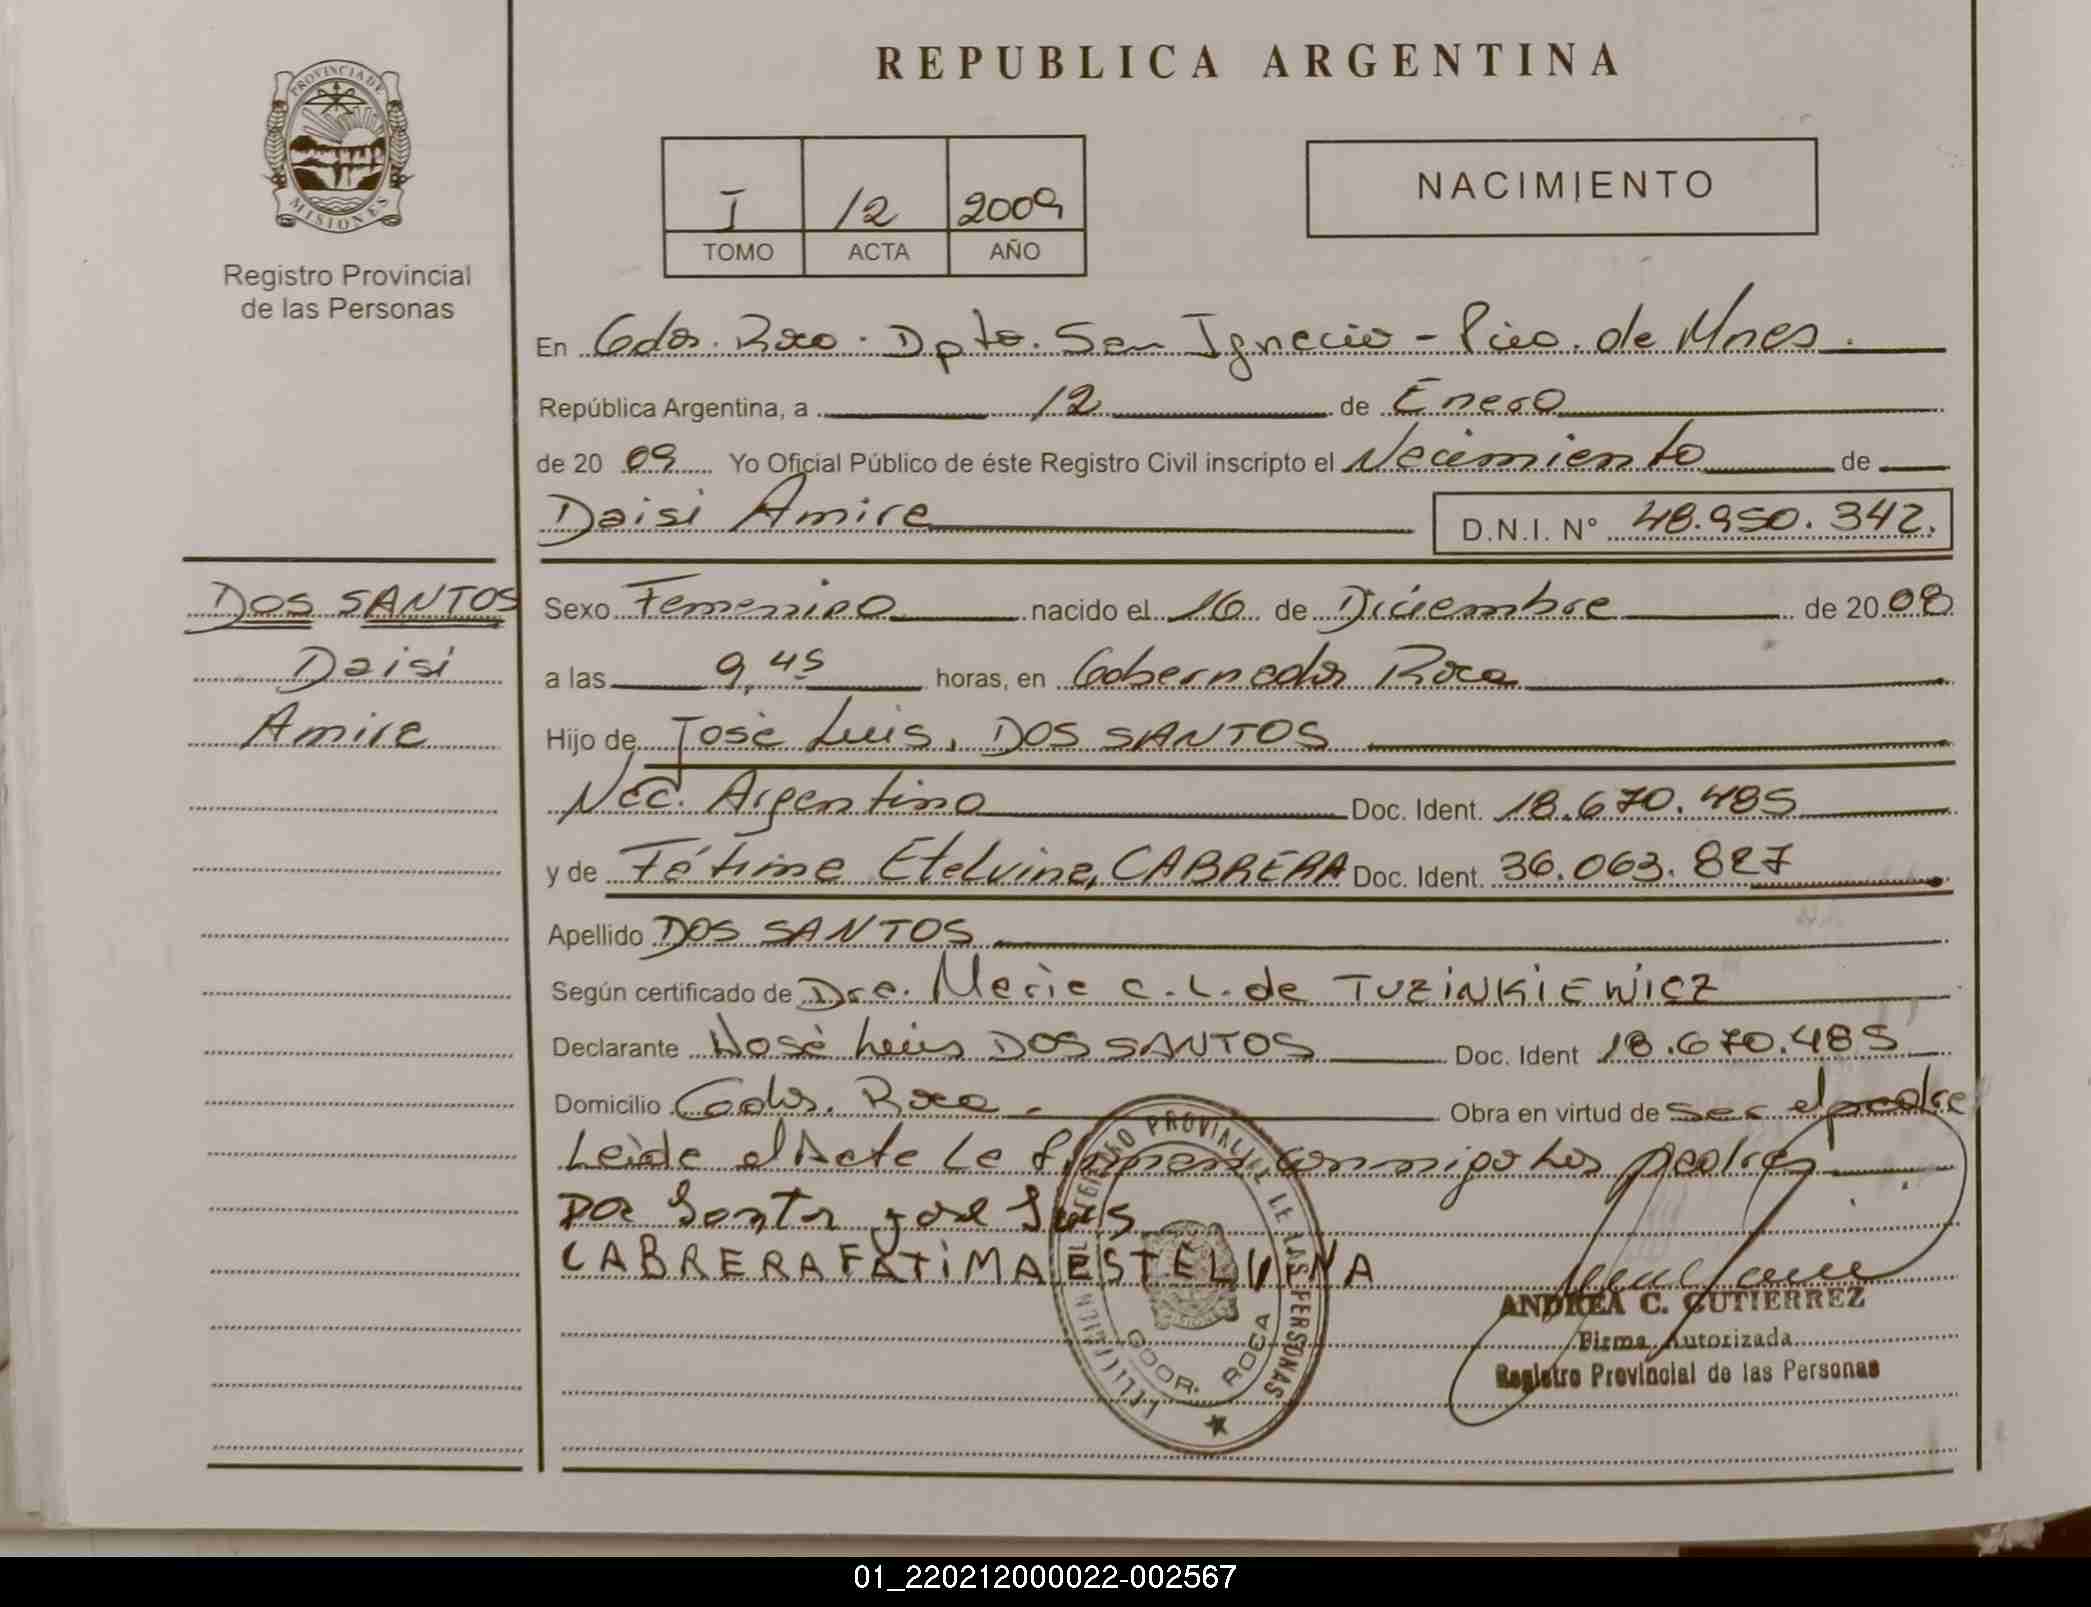 REPUBLICA ARGENTINA
PROVINCIA DE
MISIONES
Registro Provincial
de las Personas
I 12 2009
TOMO ACTA AÑO
NACIMIENTO
En Gdor. Roca. Dpto. San Ignacio - Pcia. de Mnes.
República Argentina, a 12 de Enero
de 20 09 Yo Oficial Público de éste Registro Civil inscripto el Nacimiento de
Daisi Amira D.N.I. N° 48.950.342.
DOS SANTOS
Daisi
Amira
Sexo Femenino nacido el 16 de Diciembre de 20 08
a las 9,45 horas, en Gobernador Roca
Hijo de José Luis, DOS SANTOS
Nac. Argentina Doc. Ident. 18.670.485
y de Fátima Etelvina, CABRERA Doc. Ident. 36.063.827
Apellido DOS SANTOS
Según certificado de Dra. Maria C. L. de TUZINKIEWICZ
Declarante José Luis DOS SANTOS Doc. Ident 18.670.485
Domicilio Gdor. Roca. Obra en virtud de ser el padre
Leida el Acta la firman conmigo los padres
Dos Santos jose Luis
CABRERA FATIMA ESTELVINA
REGISTRO PROVINCIAL DE LAS PERSONAS
GDOR. ROCA
ANDREA C. GUTIERREZ
Firma Autorizada
Registro Provincial de las Personas
01_220212000022-002567